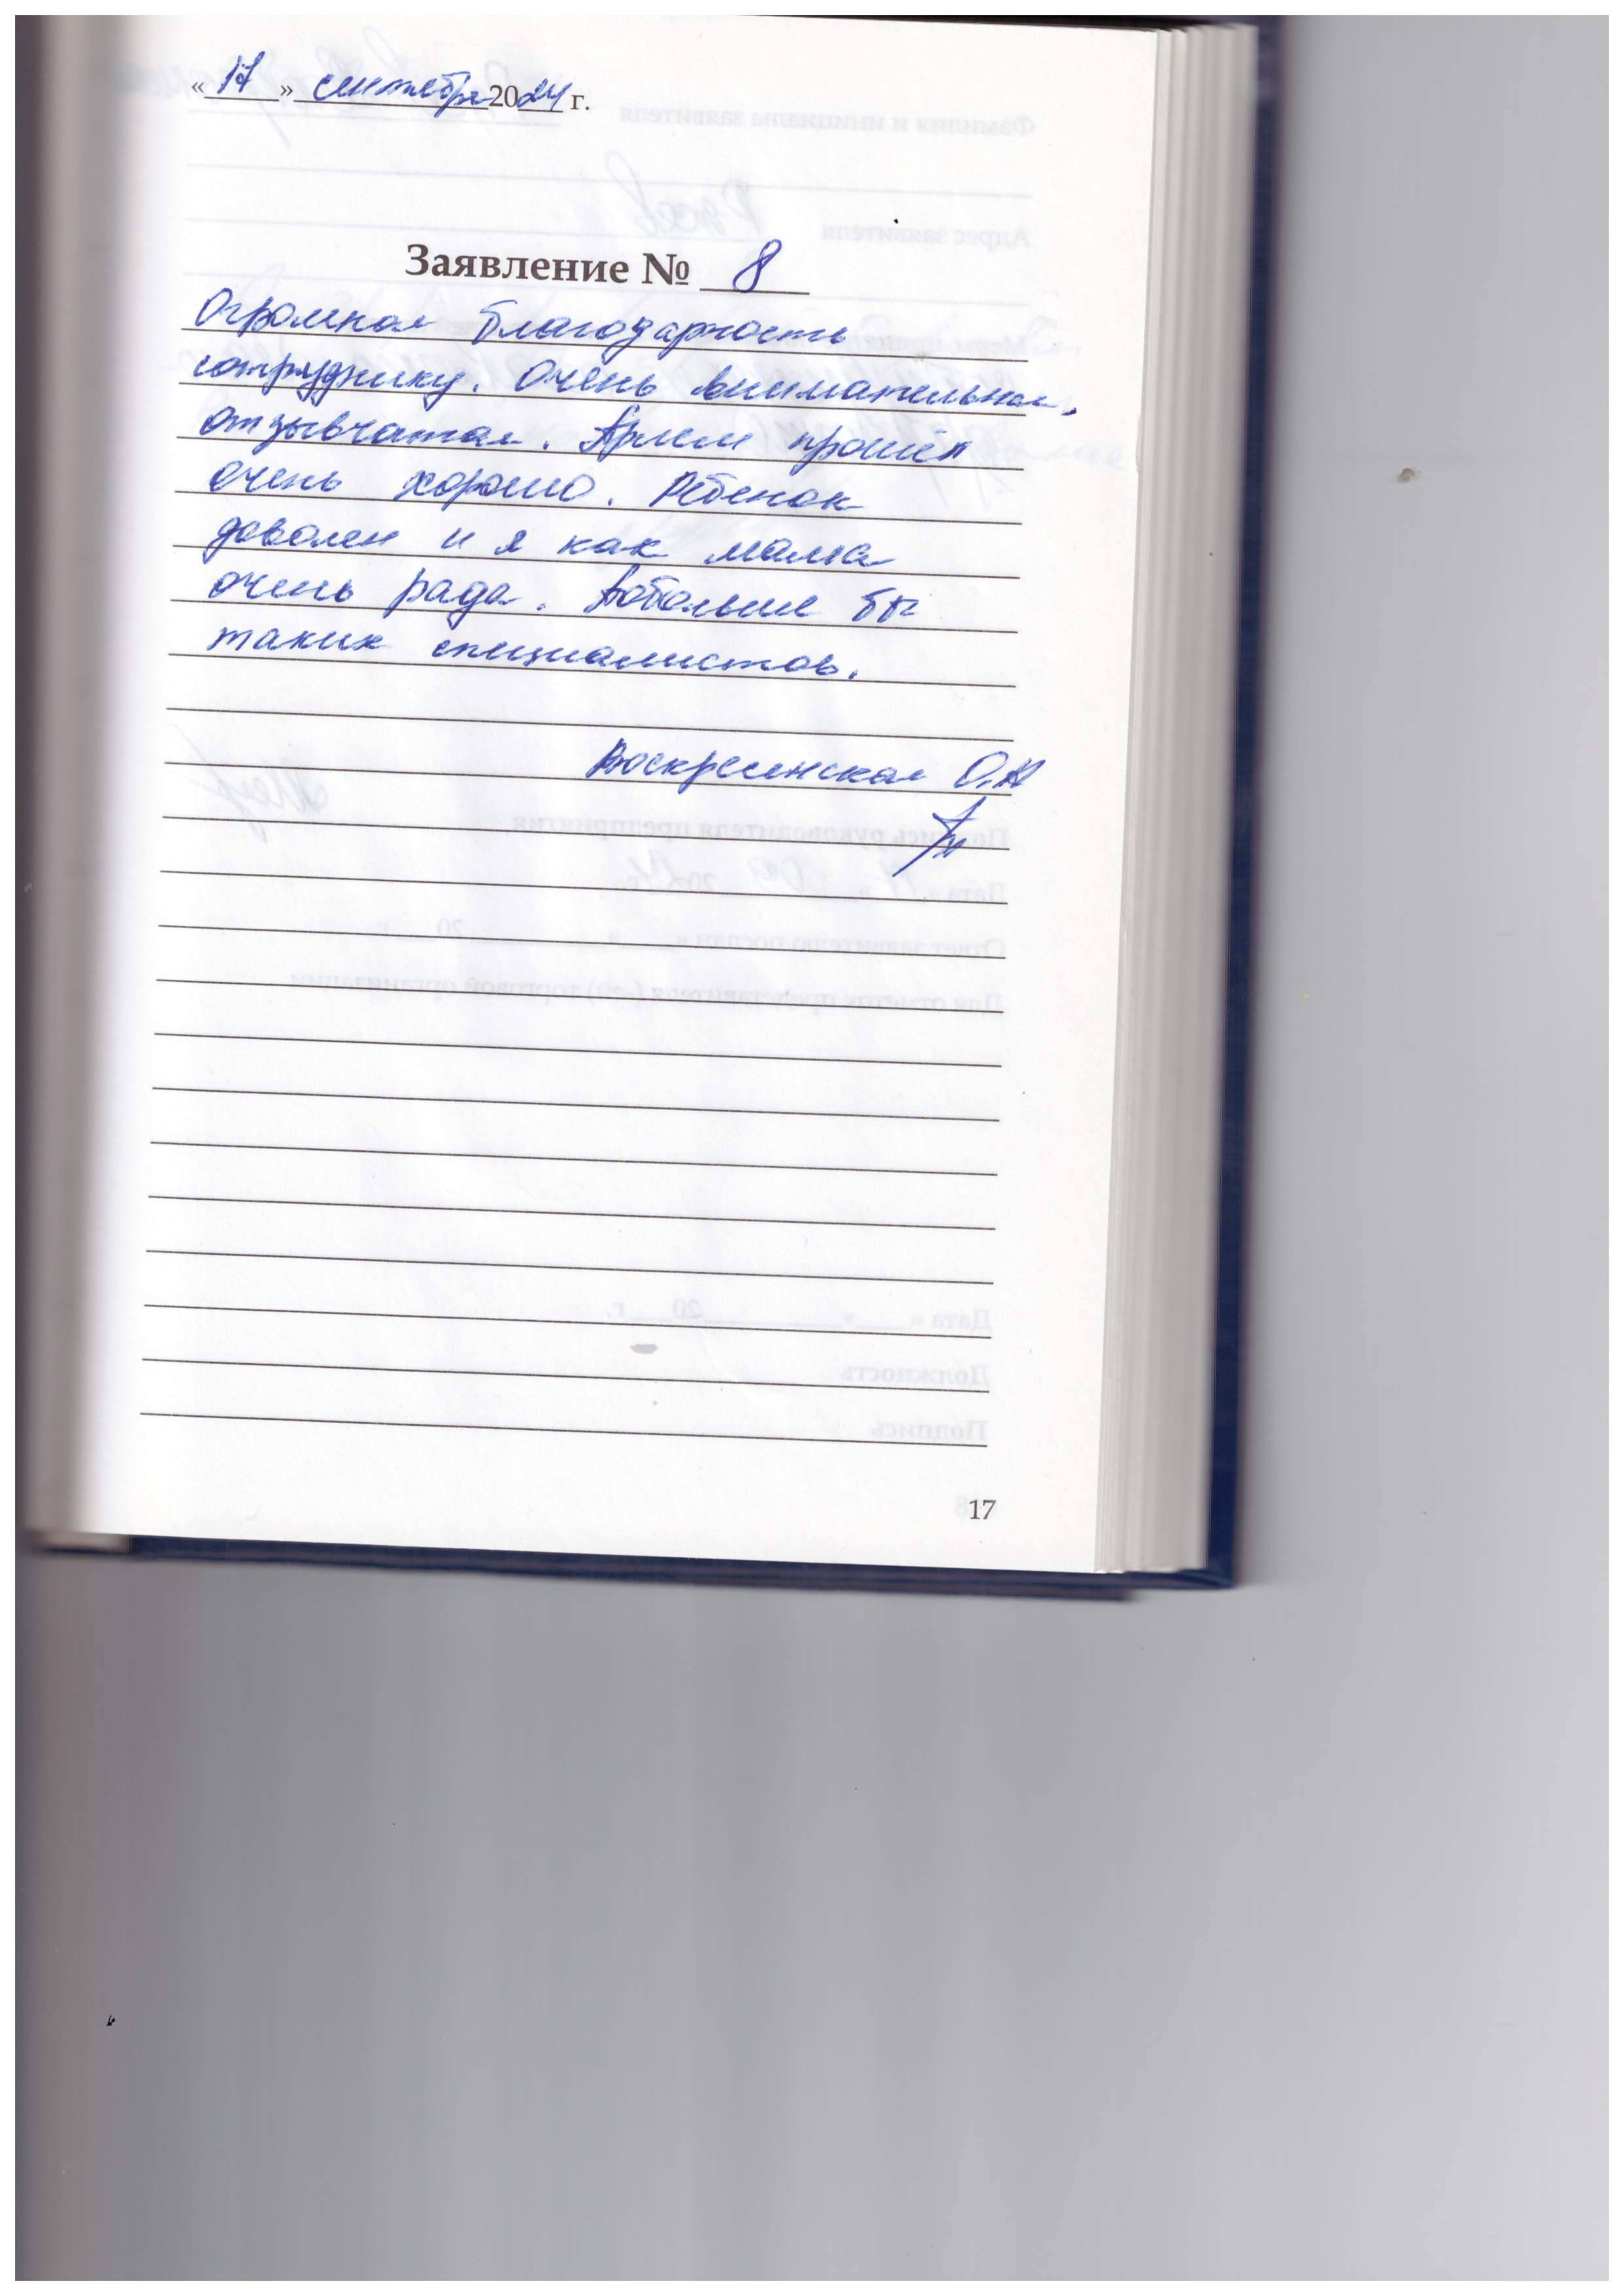 «17» сентября 2024 г.
Заявление № 8
Огромная благодарность
сотруднику. Очень внимательная,
отзывчатая. Приём прошёл
очень хорошо. Ребенок
доволен и я как мама
очень рада. Побольше бы
таких специалистов.
Воскресенская О.Н
17